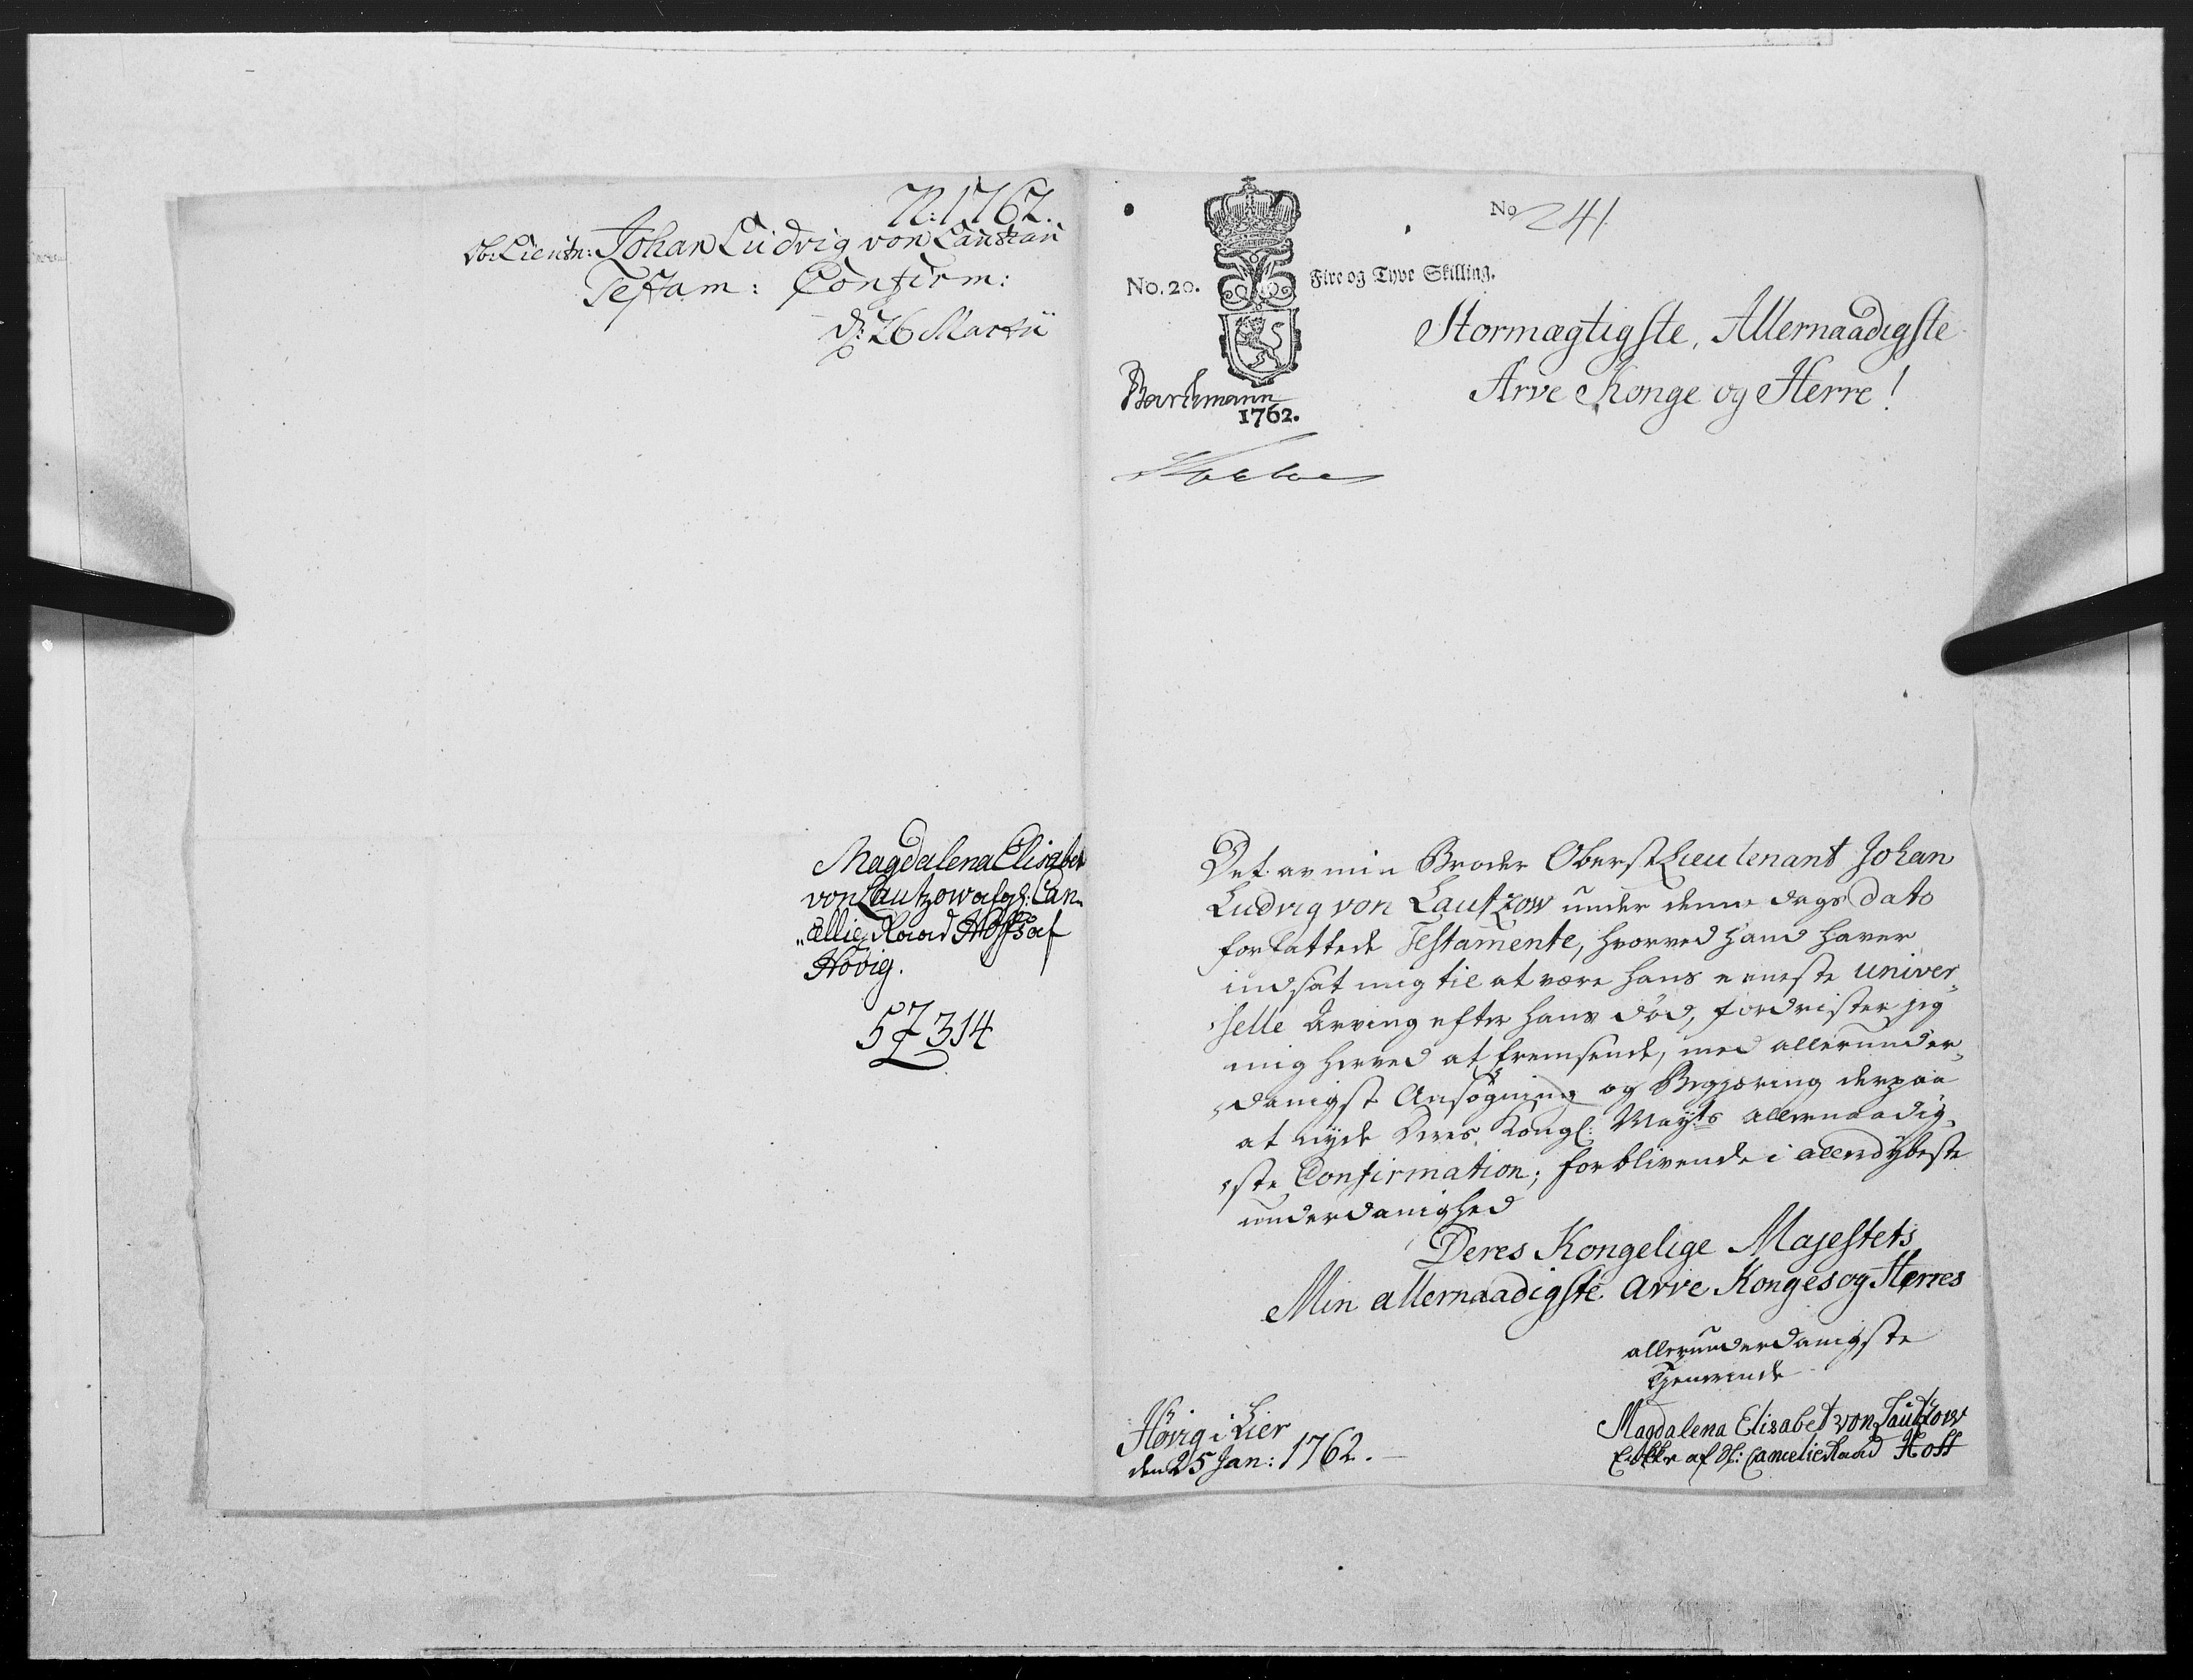 N: 1762.
Ob: Lieutn: Johan Ludvig von Lautzau
Testam: Confirm:
d: 26 Martii
Magdalena Elisabet
von Lautzow afg: Can-
"cellie Raad Hoffs af
Høvig.
57314
No. 20.
Fire og Tyve Skilling.
No 241
Barthmann
1762.
Stormægtigste, Allernaadigste
Arve Konge og Herre!
Det av min Broder Oberst Lieutenant Johan
Ludvig von Lautzow under denne dags dato
forfattede Testamente, hvorved hand haver
indsat mig til at være hans eneeste univer-
"selle Arving efter hans död, fordrister jeg
mig herved at fremsende, med allerunder-
"danigst Ansögning og Begjæring derpaa
at nyde Deres Kongl: Mayts allernaadig-
"ste Confirmation; forblivende i allerdybeste
underdanighed
Deres Kongelige Majestets
Min allernaadigste Arve Konges og Herres
allerunderdanigste
Tjenerinde
Magdalena Elisabet von Lautzow
Enke af Sl: Cancelie Raad Hoff
Høvig i Lier
den 25 Jan: 1762.